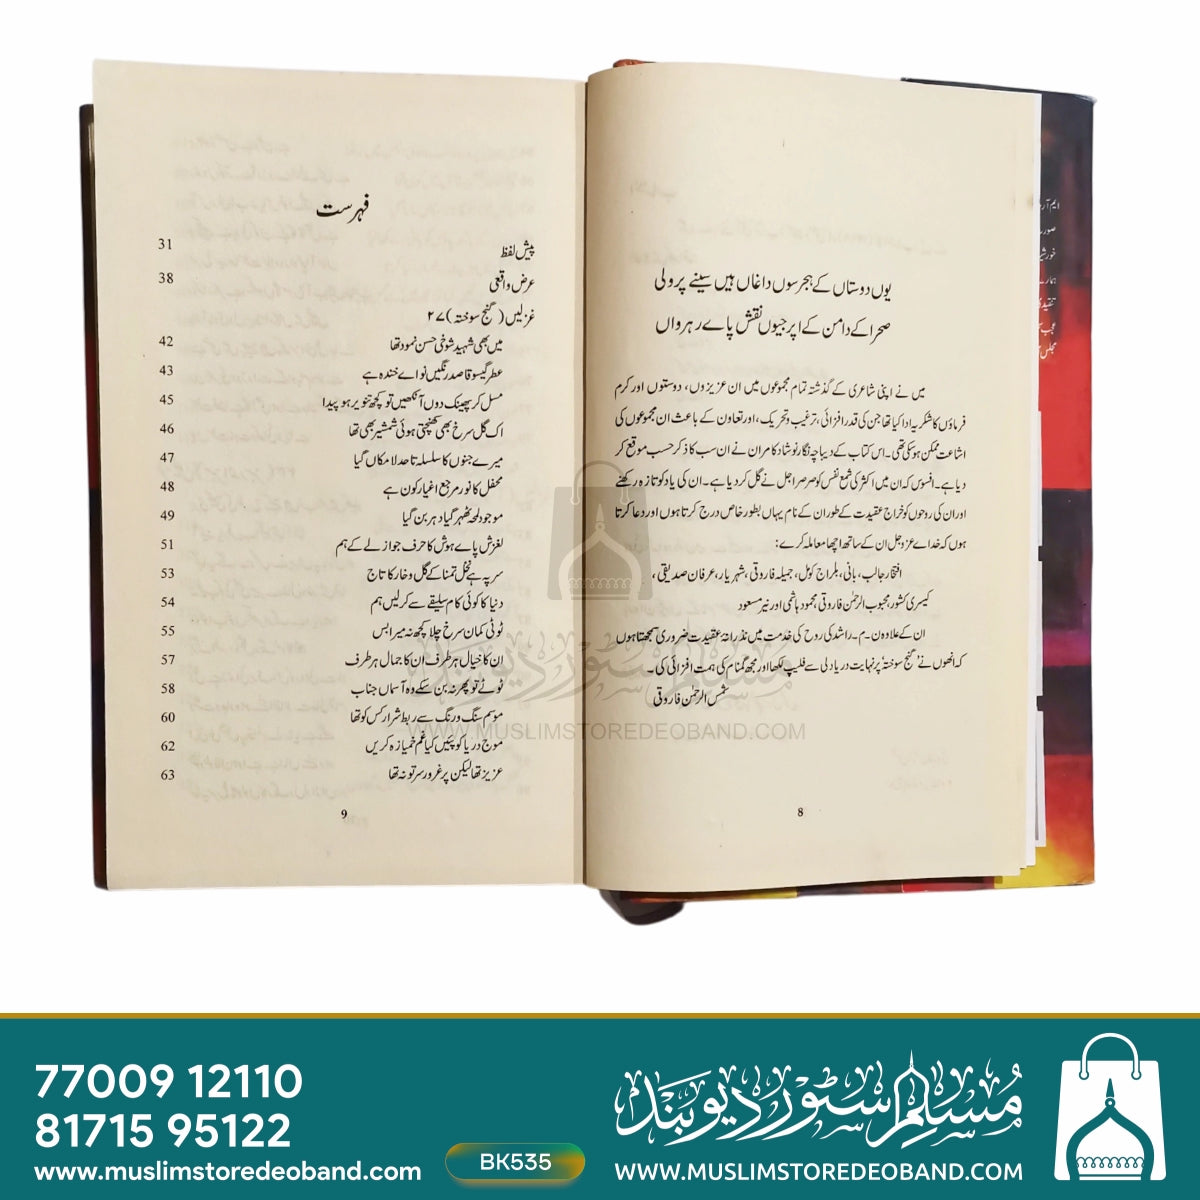 یوں دوستاں کے ہجر سوں داغاں ہیں سینے پر ولی
صحرا کے دامن کے اپر جیوں نقش پاے رہرواں
میں نے اپنی شاعری کے گذشتہ تمام مجموعوں میں ان عزیزوں، دوستوں اور کرم
فرماؤں کا شکریہ ادا کیا تھا جن کی قدر افزائی، ترغیب و تحریک، اور تعاون کے باعث ان مجموعوں کی
اشاعت ممکن ہوسکی تھی۔ اس کتاب کے دیباچہ نگار نوشاد کامران نے ان سب کا ذکر حسب موقع کر
دیا ہے۔ افسوس کہ ان میں اکثر کی شمع نفس کو صرصر اجل نے گل کر دیا ہے۔ ان کی یاد کو تازہ رکھنے
اور ان کی روحوں کو خراج عقیدت کے طور ان کے نام یہاں بطور خاص درج کرتا ہوں اور دعا کرتا
ہوں کہ خداے عز و جل ان کے ساتھ اچھا معاملہ کرے:
افتخار جالب، بانی، بلراج کول، جمیلہ فاروقی، شہریار، عرفان صدیقی،
کیسری کشور، محبوب الرحمٰن فاروقی، محمود ہاشمی اور نیر مسعود
ان کے علاوہ ن۔م۔ راشد کی روح کی خدمت میں نذرانۂ عقیدت ضروری سمجھتا ہوں
کہ انھوں نے 'گنج سوختہ' پر نہایت دریا دلی سے فلیپ لکھا اور مجھ گمنام کی ہمت افزائی کی۔
شمس الرحمٰن فاروقی
8
فہرست
پیش لفظ 31
عرض واقعی 38
غزلیں (گنج سوختہ) ۲۷
میں بھی شہید شوخی حسن نمود تھا 42
عطر گیسو قاصد رنگیں نواے خندہ ہے 43
مسل کر پھینک دوں آنکھیں تو کچھ تنویر ہو پیدا 45
اک گل سرخ بھی کھنچتی ہوئی شمشیر بھی تھا 46
میرے جنوں کا سلسلہ تا حد لامکاں گیا 47
محفل کا نور مرجع اغیار کون ہے 48
موجود لمحہ ٹھہر گیا دہر بن گیا 49
لغزش پاے ہوش کا حرف جواز لے کے ہم 51
سر پہ ہے نخل تمنا کے گل و خار کا تاج 53
دنیا کا کوئی کام سلیقے سے کر لیں ہم 54
ٹوٹی کمان سرخ چلا کچھ نہ میرا بس 55
ان کا خیال ہر طرف ان کا جمال ہر طرف 57
ٹوٹے تو پھر نہ بن سکے وہ آسماں جناب 58
موسم سنگ و رنگ سے ربط شرار کس کو تھا 60
موج دریا کو پئیں کیا غم خمیازہ کریں 62
عزیز تھا لیکن پر غرور سر تو نہ تھا 63
9
مسلم سٹور دیوبند
WWW.MUSLIMSTOREDEOBAND.COM
77009 12110
81715 95122
www.muslimstoredeoband.com
BK535
مسلم سٹور دیوبند
WWW.MUSLIMSTOREDEOBAND.COM